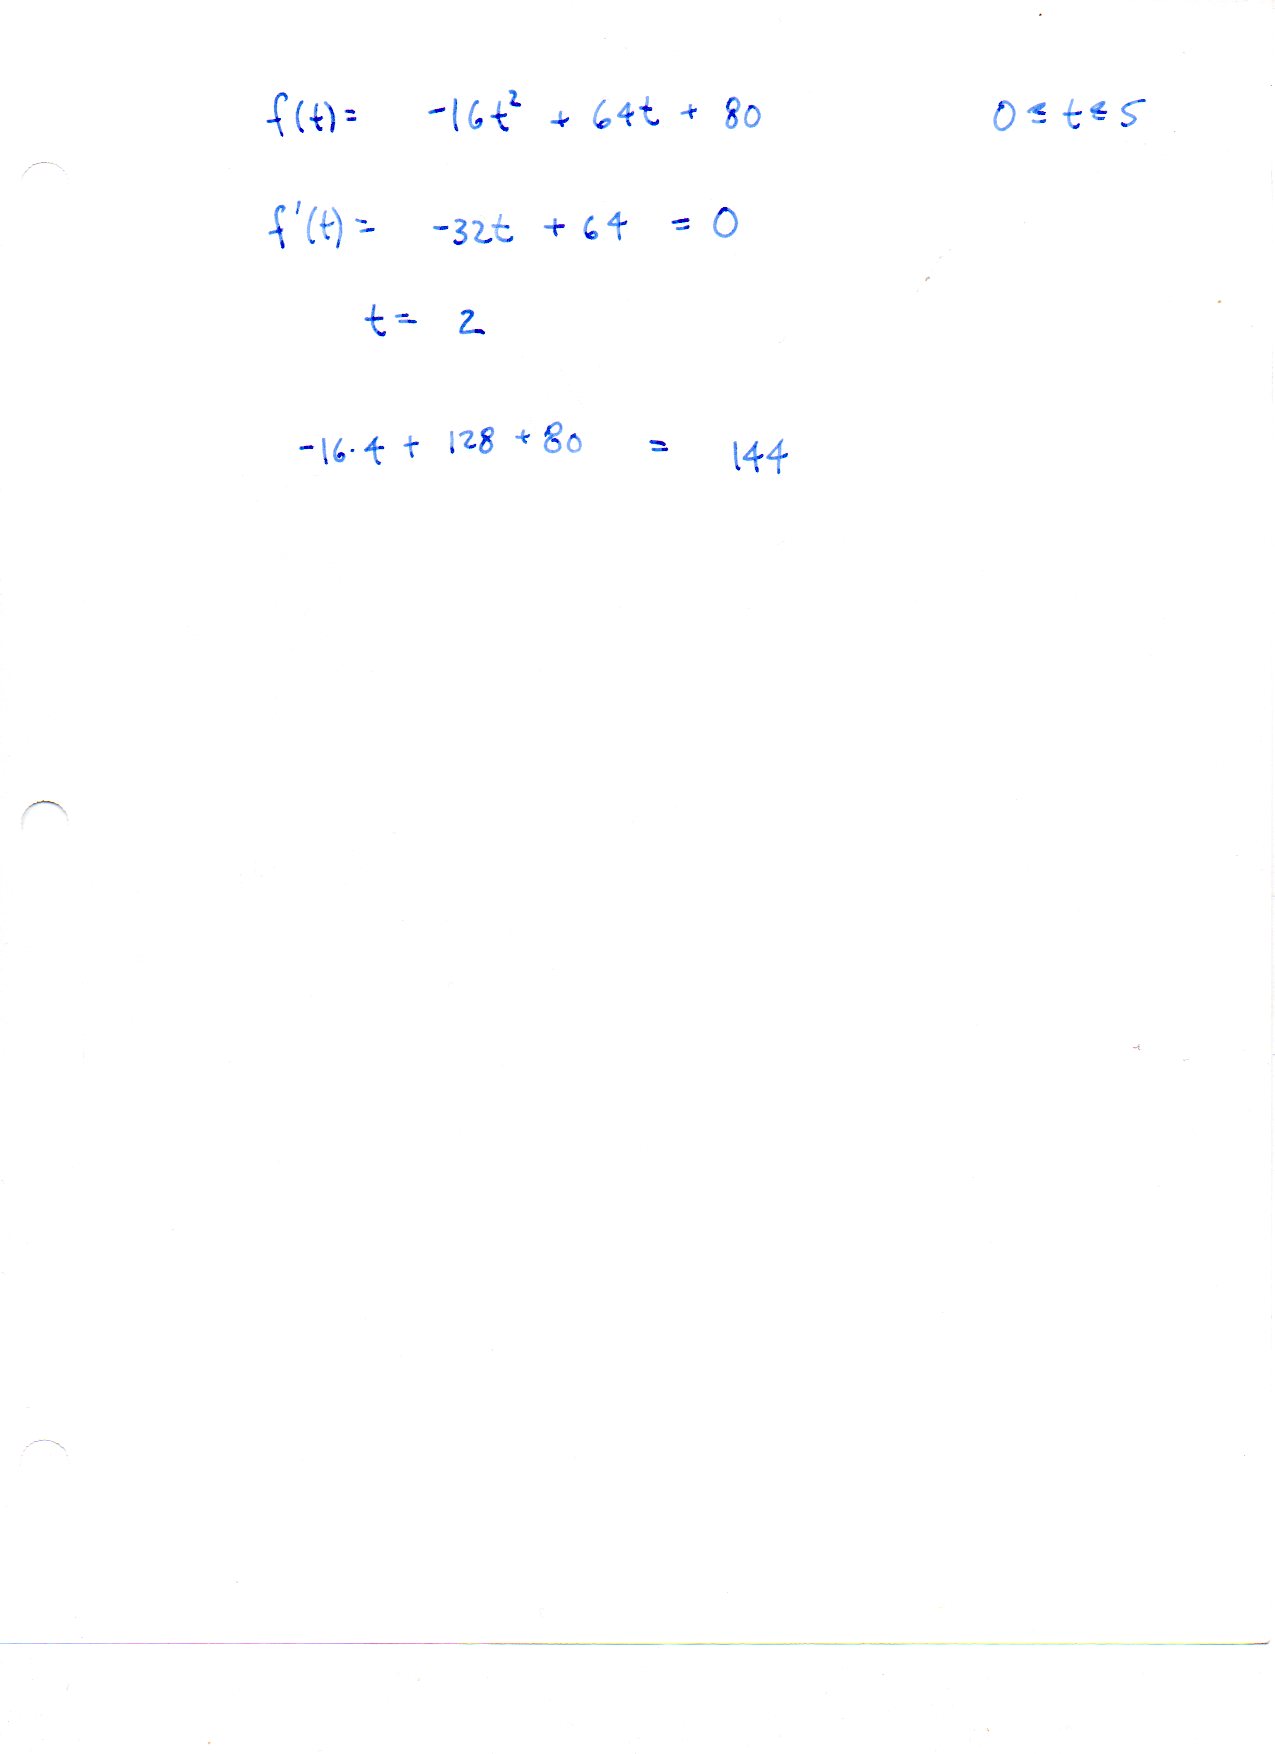 f(t) = -16t² + 64t + 80 0 ≤ t ≤ 5
f'(t) = -32t + 64 = 0
t = 2
-16·4 + 128 + 80 = 144